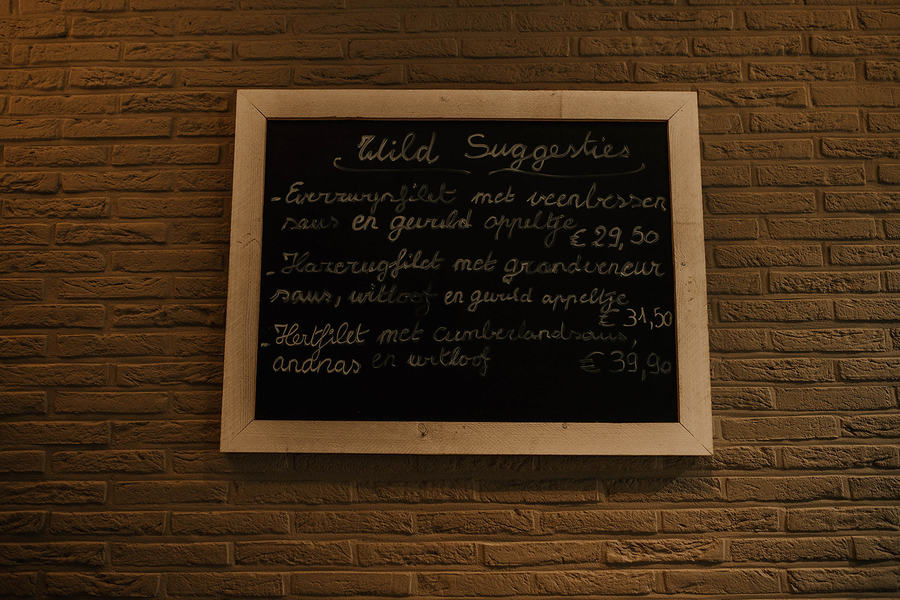 Wild Suggesties
- Everzwijnfilet met veenbessen
saus en gevuld appeltje
€ 29,50
- Hazerugfilet met grandveneur
saus, witloof en gevuld appeltje
€ 31,50
- Hertfilet met cumberlandsaus,
ananas en witloof € 39,90